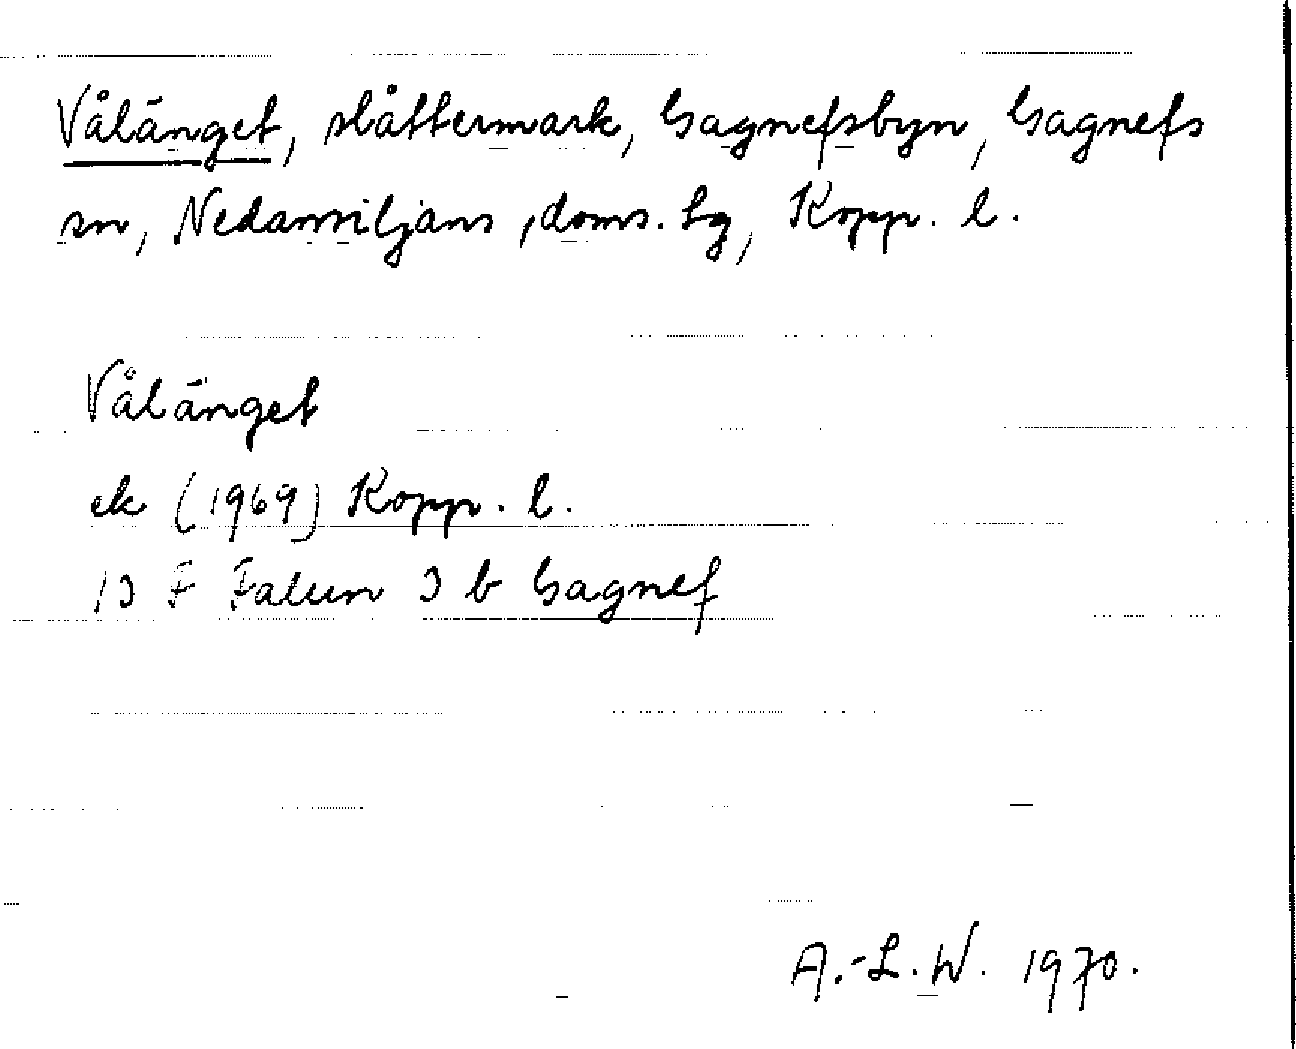 Vålänget, slåttermark, Gagnefsbyn, Gagnefs
sn, Nedansiljans ,doms. lg, Kopp. l.
Vålänget
ek (1969) Kopp. l.
13 F Falun 3 b Gagnef
A.-L. W. 1970.